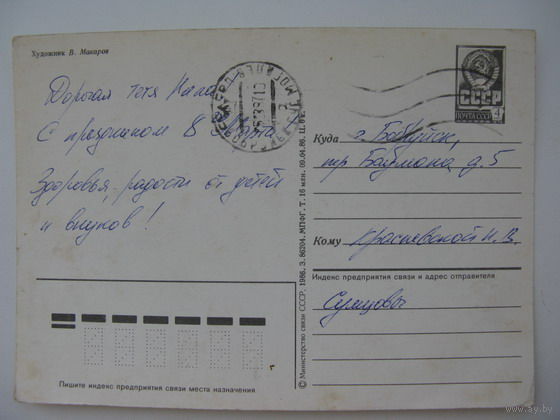 Художник В. Макаров
Дорогая тетя Нила
С праздником 8 Марта
Здоровья, радости от детей
и внуков!
Пишите индекс предприятия связи места назначения
© Министерство связи СССР. 1986. З. 86204. МПФГ. Т. 16 млн. 09.04.86. Ц. 5 к.
СССР
ПОЧТА СССР
Куда г. Бобруйск,
пр Баумана д. 5
Кому Красневской Н. В.
Индекс предприятия связи и адрес отправителя
Сумцовы
www.ay.by